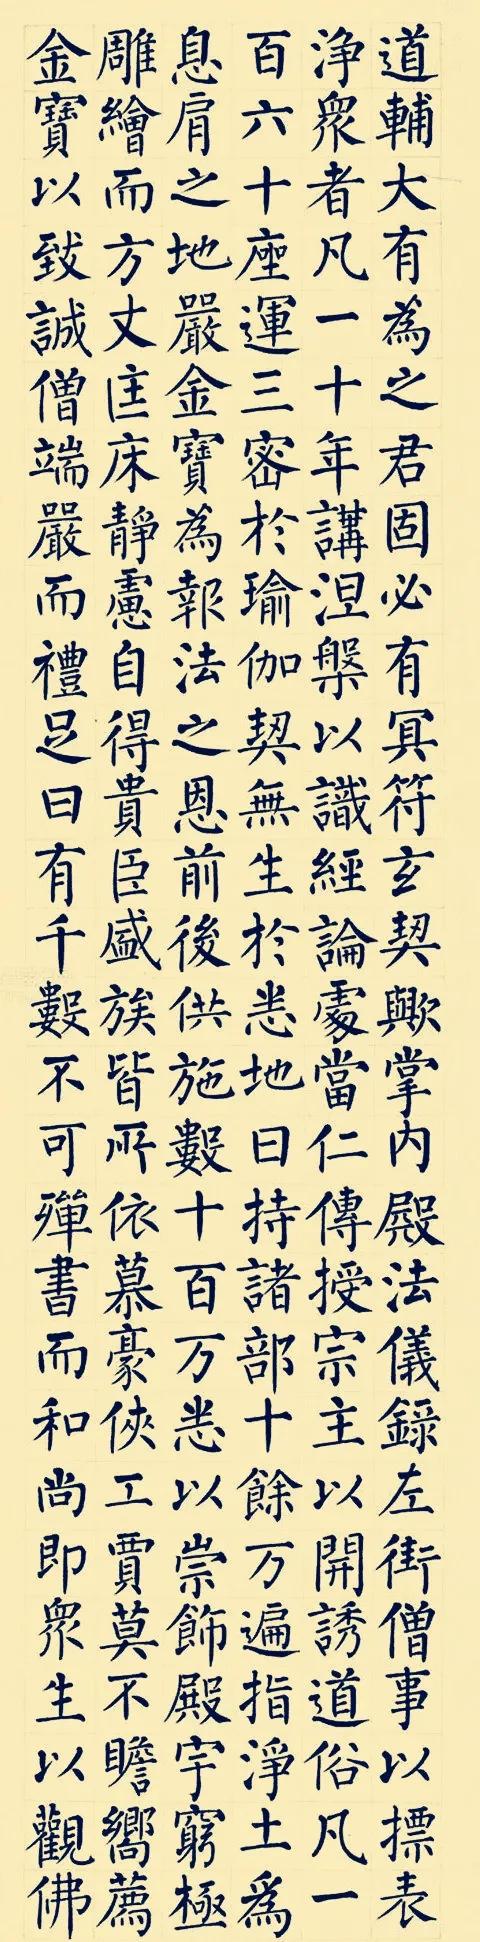 道輔大有為之君固必有冥符玄契歟掌內殿法儀錄左街僧事以摽表
淨衆者凡一十年講涅槃以識經論處當仁傳授宗主以開誘道俗凡一
百六十座運三密於瑜伽契無生於悉地日持諸部十餘万遍指淨土為
息肩之地嚴金寶為報法之恩前後供施數十百万悉以崇飾殿宇窮極
雕繪而方丈匡床靜慮自得貴臣盛族皆所依慕豪俠工賈莫不瞻嚮薦
金寶以致誠僧端嚴而禮足日有千數不可殫書而和尚即衆生以觀佛